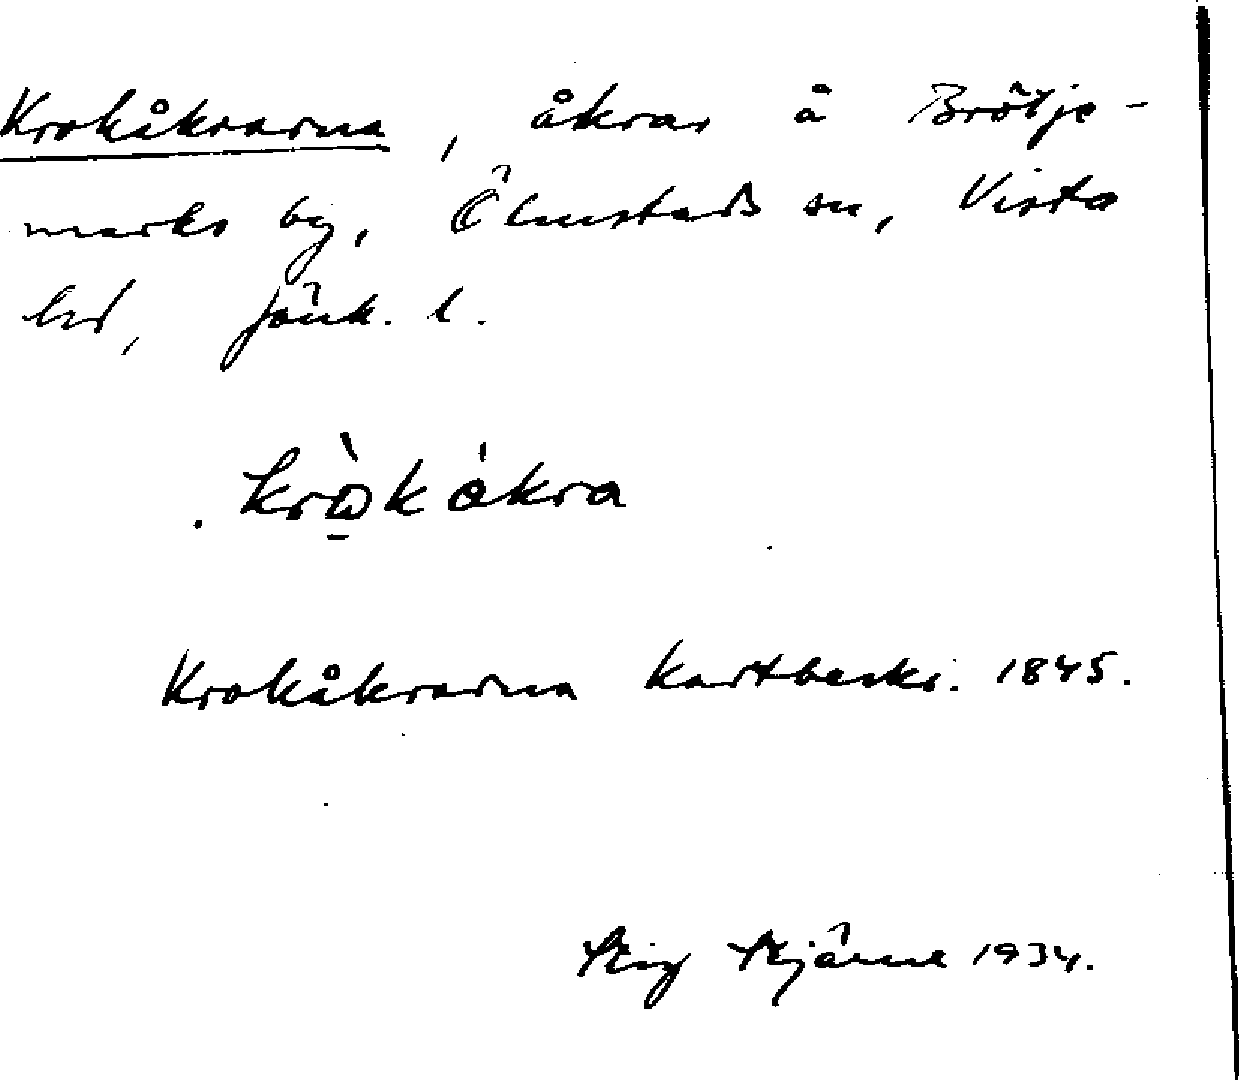 Krokåkrarna, åkrar å Brötje-
marks by, Ölmstads sn, Vista
hd, Jönk. l.
krò̱kåkra
Krokåkrarna kartbeskr. 1845.
Stig Stjärne 1934.